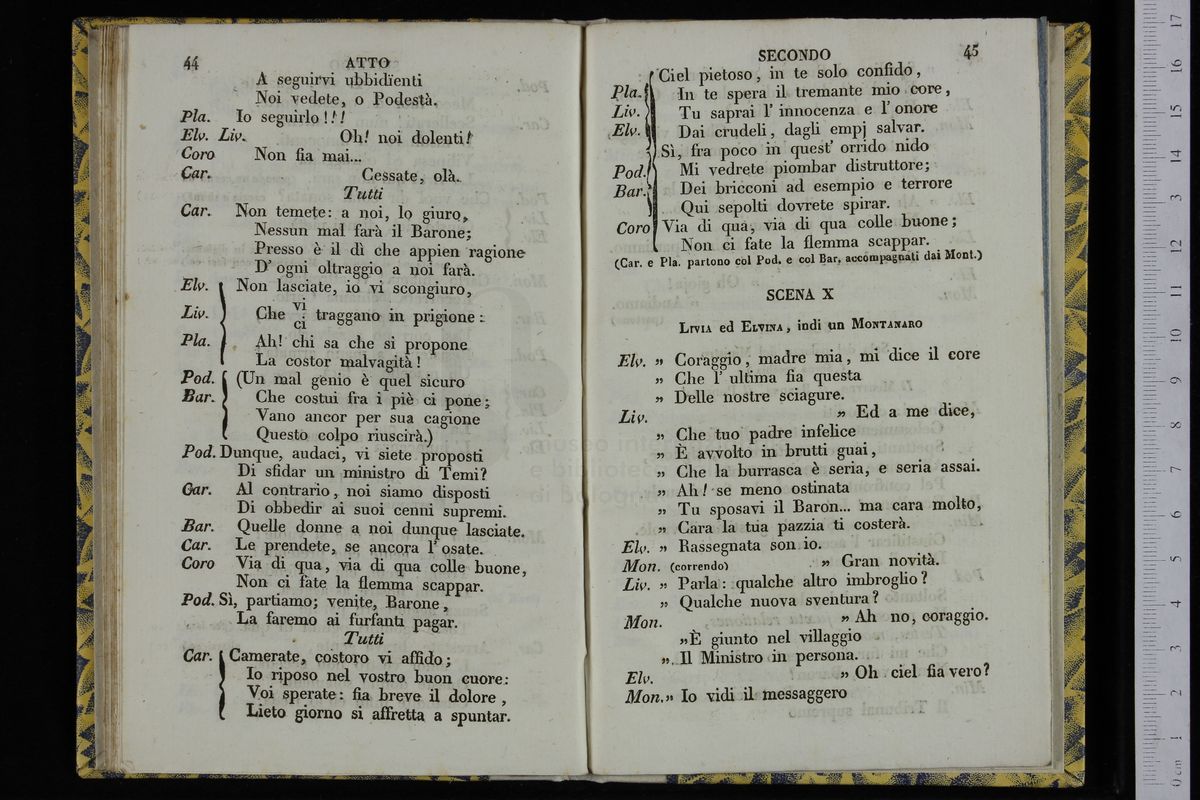 44 ATTO
A seguirvi ubbidïenti
Noi vedete, o Podestà.
Pla. Io seguirlo!!!
Elv. Liv. Oh! noi dolenti!
Coro Non fia mai...
Car. Cessate, olà.
Tutti
Car. Non temete: a noi, lo giuro,
Nessun mal farà il Barone;
Presso è il dì che appien ragione
D' ogni oltraggio a noi farà.
Elv. Non lasciate, io vi scongiuro,
Liv. Che vi ci traggano in prigione:
Pla. Ah! chi sa che si propone
La costor malvagità!
Pod. (Un mal genio è quel sicuro
Bar. Che costui fra i piè ci pone;
Vano ancor per sua cagione
Questo colpo riuscirà.)
Pod. Dunque, audaci, vi siete proposti
Di sfidar un ministro di Temi?
Car. Al contrario, noi siamo disposti
Di obbedir ai suoi cenni supremi.
Bar. Quelle donne a noi dunque lasciate.
Car. Le prendete, se ancora l' osate.
Coro Via di qua, via di qua colle buone,
Non ci fate la flemma scappar.
Pod. Sì, partiamo; venite, Barone,
La faremo ai furfanti pagar.
Tutti
Car. Camerate, costoro vi affido;
Io riposo nel vostro buon cuore:
Voi sperate: fia breve il dolore,
Lieto giorno si affretta a spuntar.
SECONDO 45
Ciel pietoso, in te solo confido,
Pla. In te spera il tremante mio core,
Liv. Tu saprai l' innocenza e l' onore
Elv. Dai crudeli, dagli empj salvar.
Sì, fra poco in quest' orrido nido
Pod. Mi vedrete piombar distruttore;
Bar. Dei bricconi ad esempio e terrore
Qui sepolti dovrete spirar.
Coro Via di qua, via di qua colle buone;
Non ci fate la flemma scappar.
(Car. e Pla. partono col Pod. e col Bar. accompagnati dai Mont.)
SCENA X
LIVIA ed ELVINA, indi un MONTANARO
Elv. „ Coraggio, madre mia, mi dice il core
„ Che l' ultima fia questa
„ Delle nostre sciagure.
Liv. „ Ed a me dice,
„ Che tuo padre infelice
„ È avvolto in brutti guai,
„ Che la burrasca è seria, e seria assai.
„ Ah! se meno ostinata
„ Tu sposavi il Baron... ma cara molto,
„ Cara la tua pazzia ti costerà.
Elv. „ Rassegnata son io.
Mon. (correndo) „ Gran novità.
Liv. „ Parla: qualche altro imbroglio?
„ Qualche nuova sventura?
Mon. „ Ah no, coraggio.
„ È giunto nel villaggio
„ Il Ministro in persona.
Elv. „ Oh ciel fia vero?
Mon. „ Io vidi il messaggero